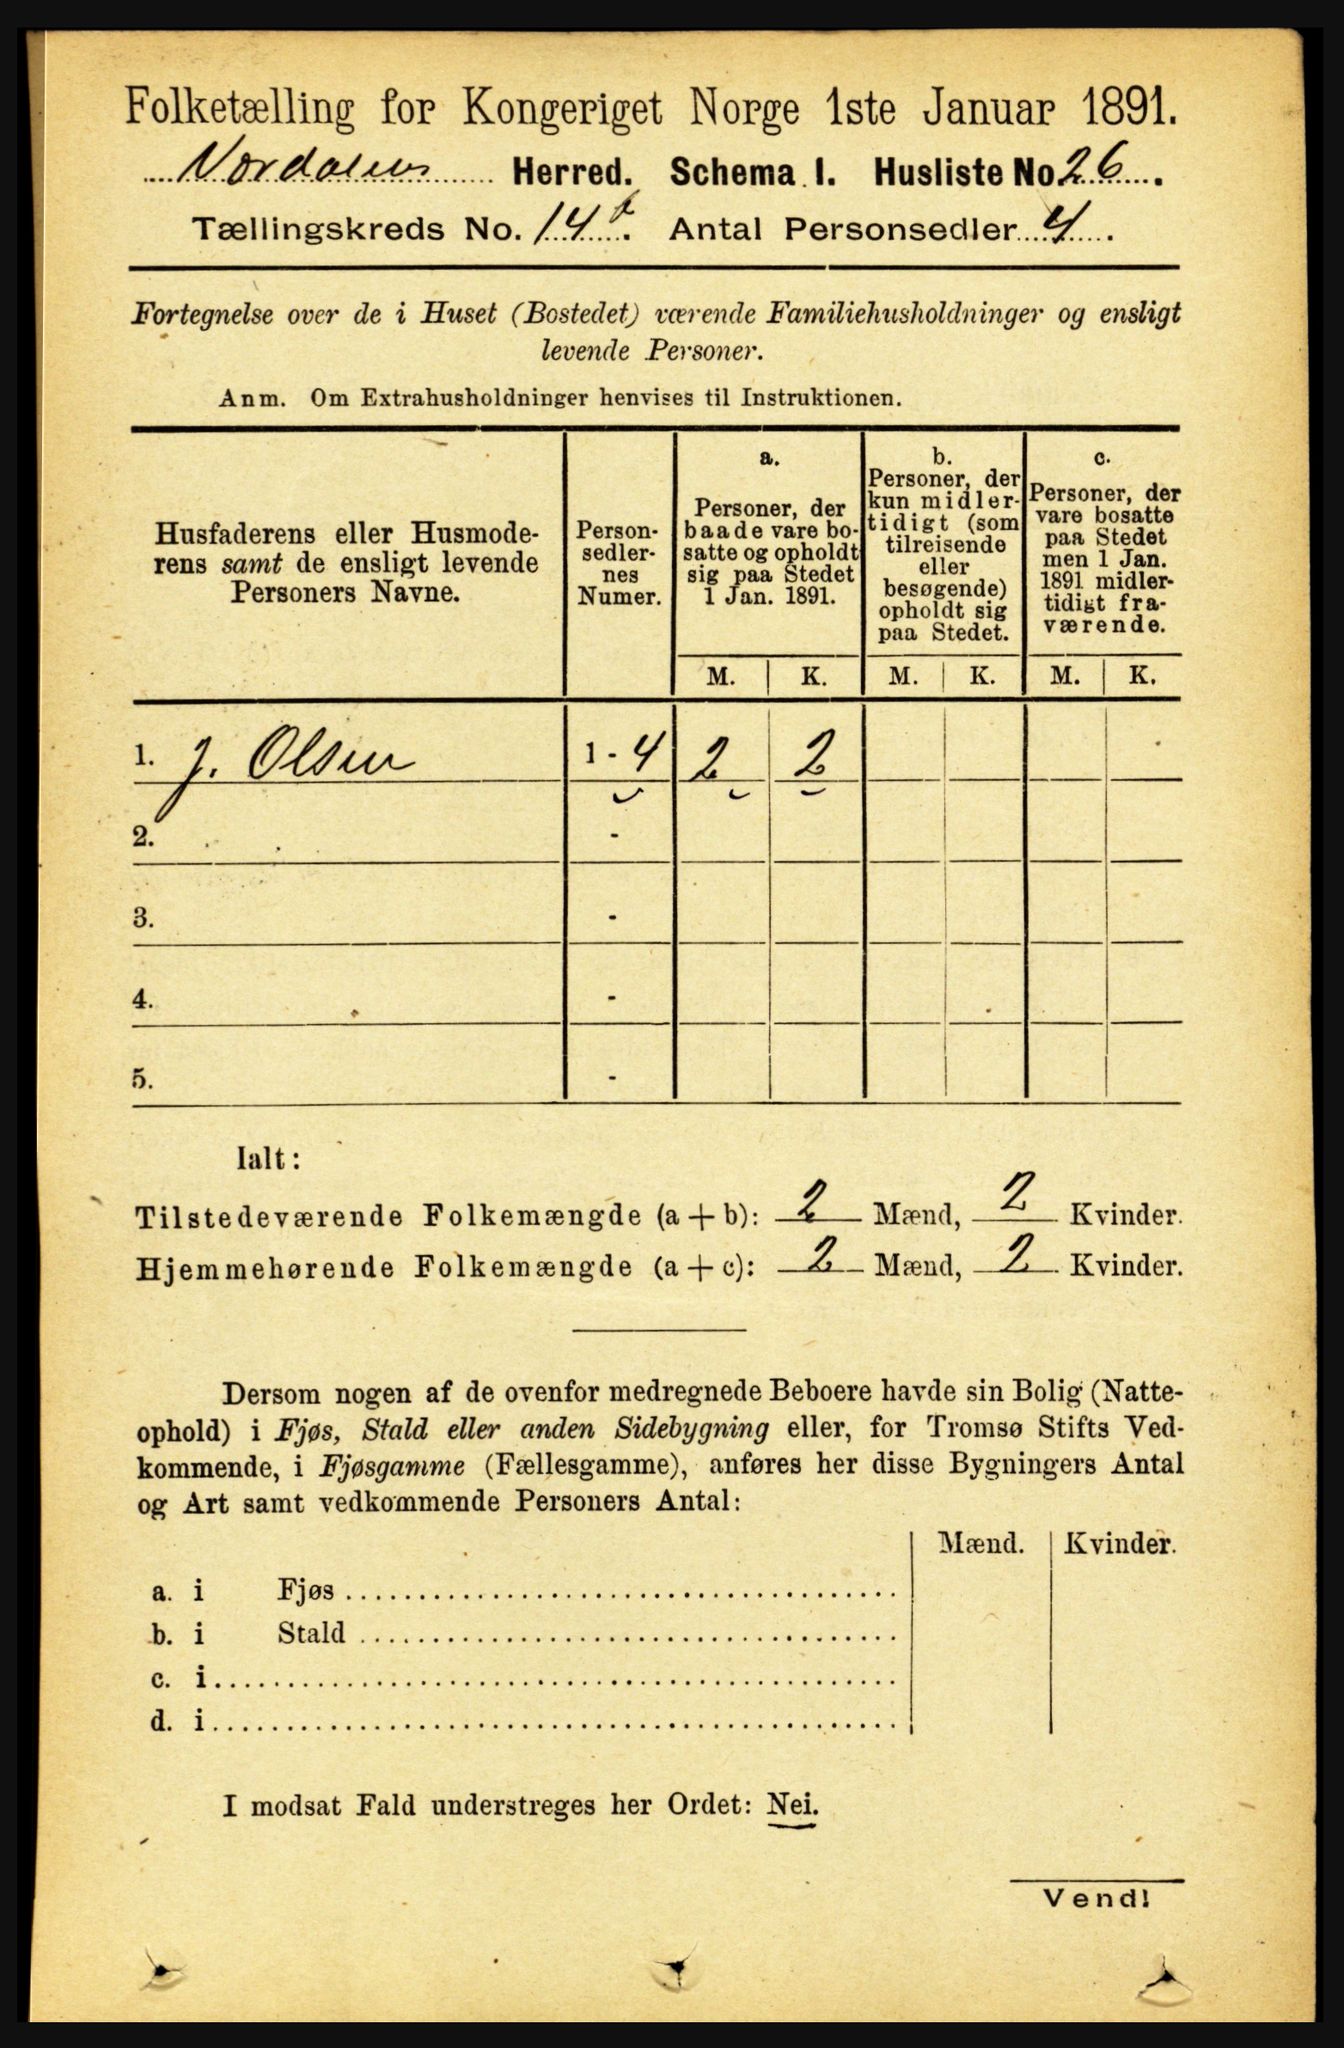 Folketælling for Kongeriget Norge 1ste Januar 1891.
Nordalens Herred. Schema I. Husliste No 26.
Tællingskreds No. 14 b. Antal Personsedler 4.
Fortegnelse over de i Huset (Bostedet) værende Familiehusholdninger og ensligt
levende Personer.
Anm. Om Extrahusholdninger henvises til Instruktionen.
Husfaderens eller Husmode-
rens samt de ensligt levende
Personers Navne.
Person-
sedler-
nes
Numer.
a.
Personer, der
baade vare bo-
satte og opholdt
sig paa Stedet
1 Jan. 1891.
b.
Personer, der
kun midler-
tidigt (som
tilreisende
eller
besøgende)
opholdt sig
paa Stedet.
c.
Personer, der
vare bosatte
paa Stedet
men 1 Jan.
1891 midler-
tidigt fra-
værende.
M. K. M. K. M. K.
1. J. Olsen 1 - 4 2 2
2. -
3. -
4. -
5. -
Ialt:
Tilstedeværende Folkemængde (a + b): 2 Mænd, 2 Kvinder.
Hjemmehørende Folkemængde (a + c): 2 Mænd, 2 Kvinder.
Dersom nogen af de ovenfor medregnede Beboere havde sin Bolig (Natte-
ophold) i Fjøs, Stald eller anden Sidebygning eller, for Tromsø Stifts Ved-
kommende, i Fjøsgamme (Fællesgamme), anføres her disse Bygningers Antal
og Art samt vedkommende Personers Antal:
Mænd. Kvinder.
a. i Fjøs
b. i Stald
c. i
d. i
I modsat Fald understreges her Ordet: Nei.
Vend!